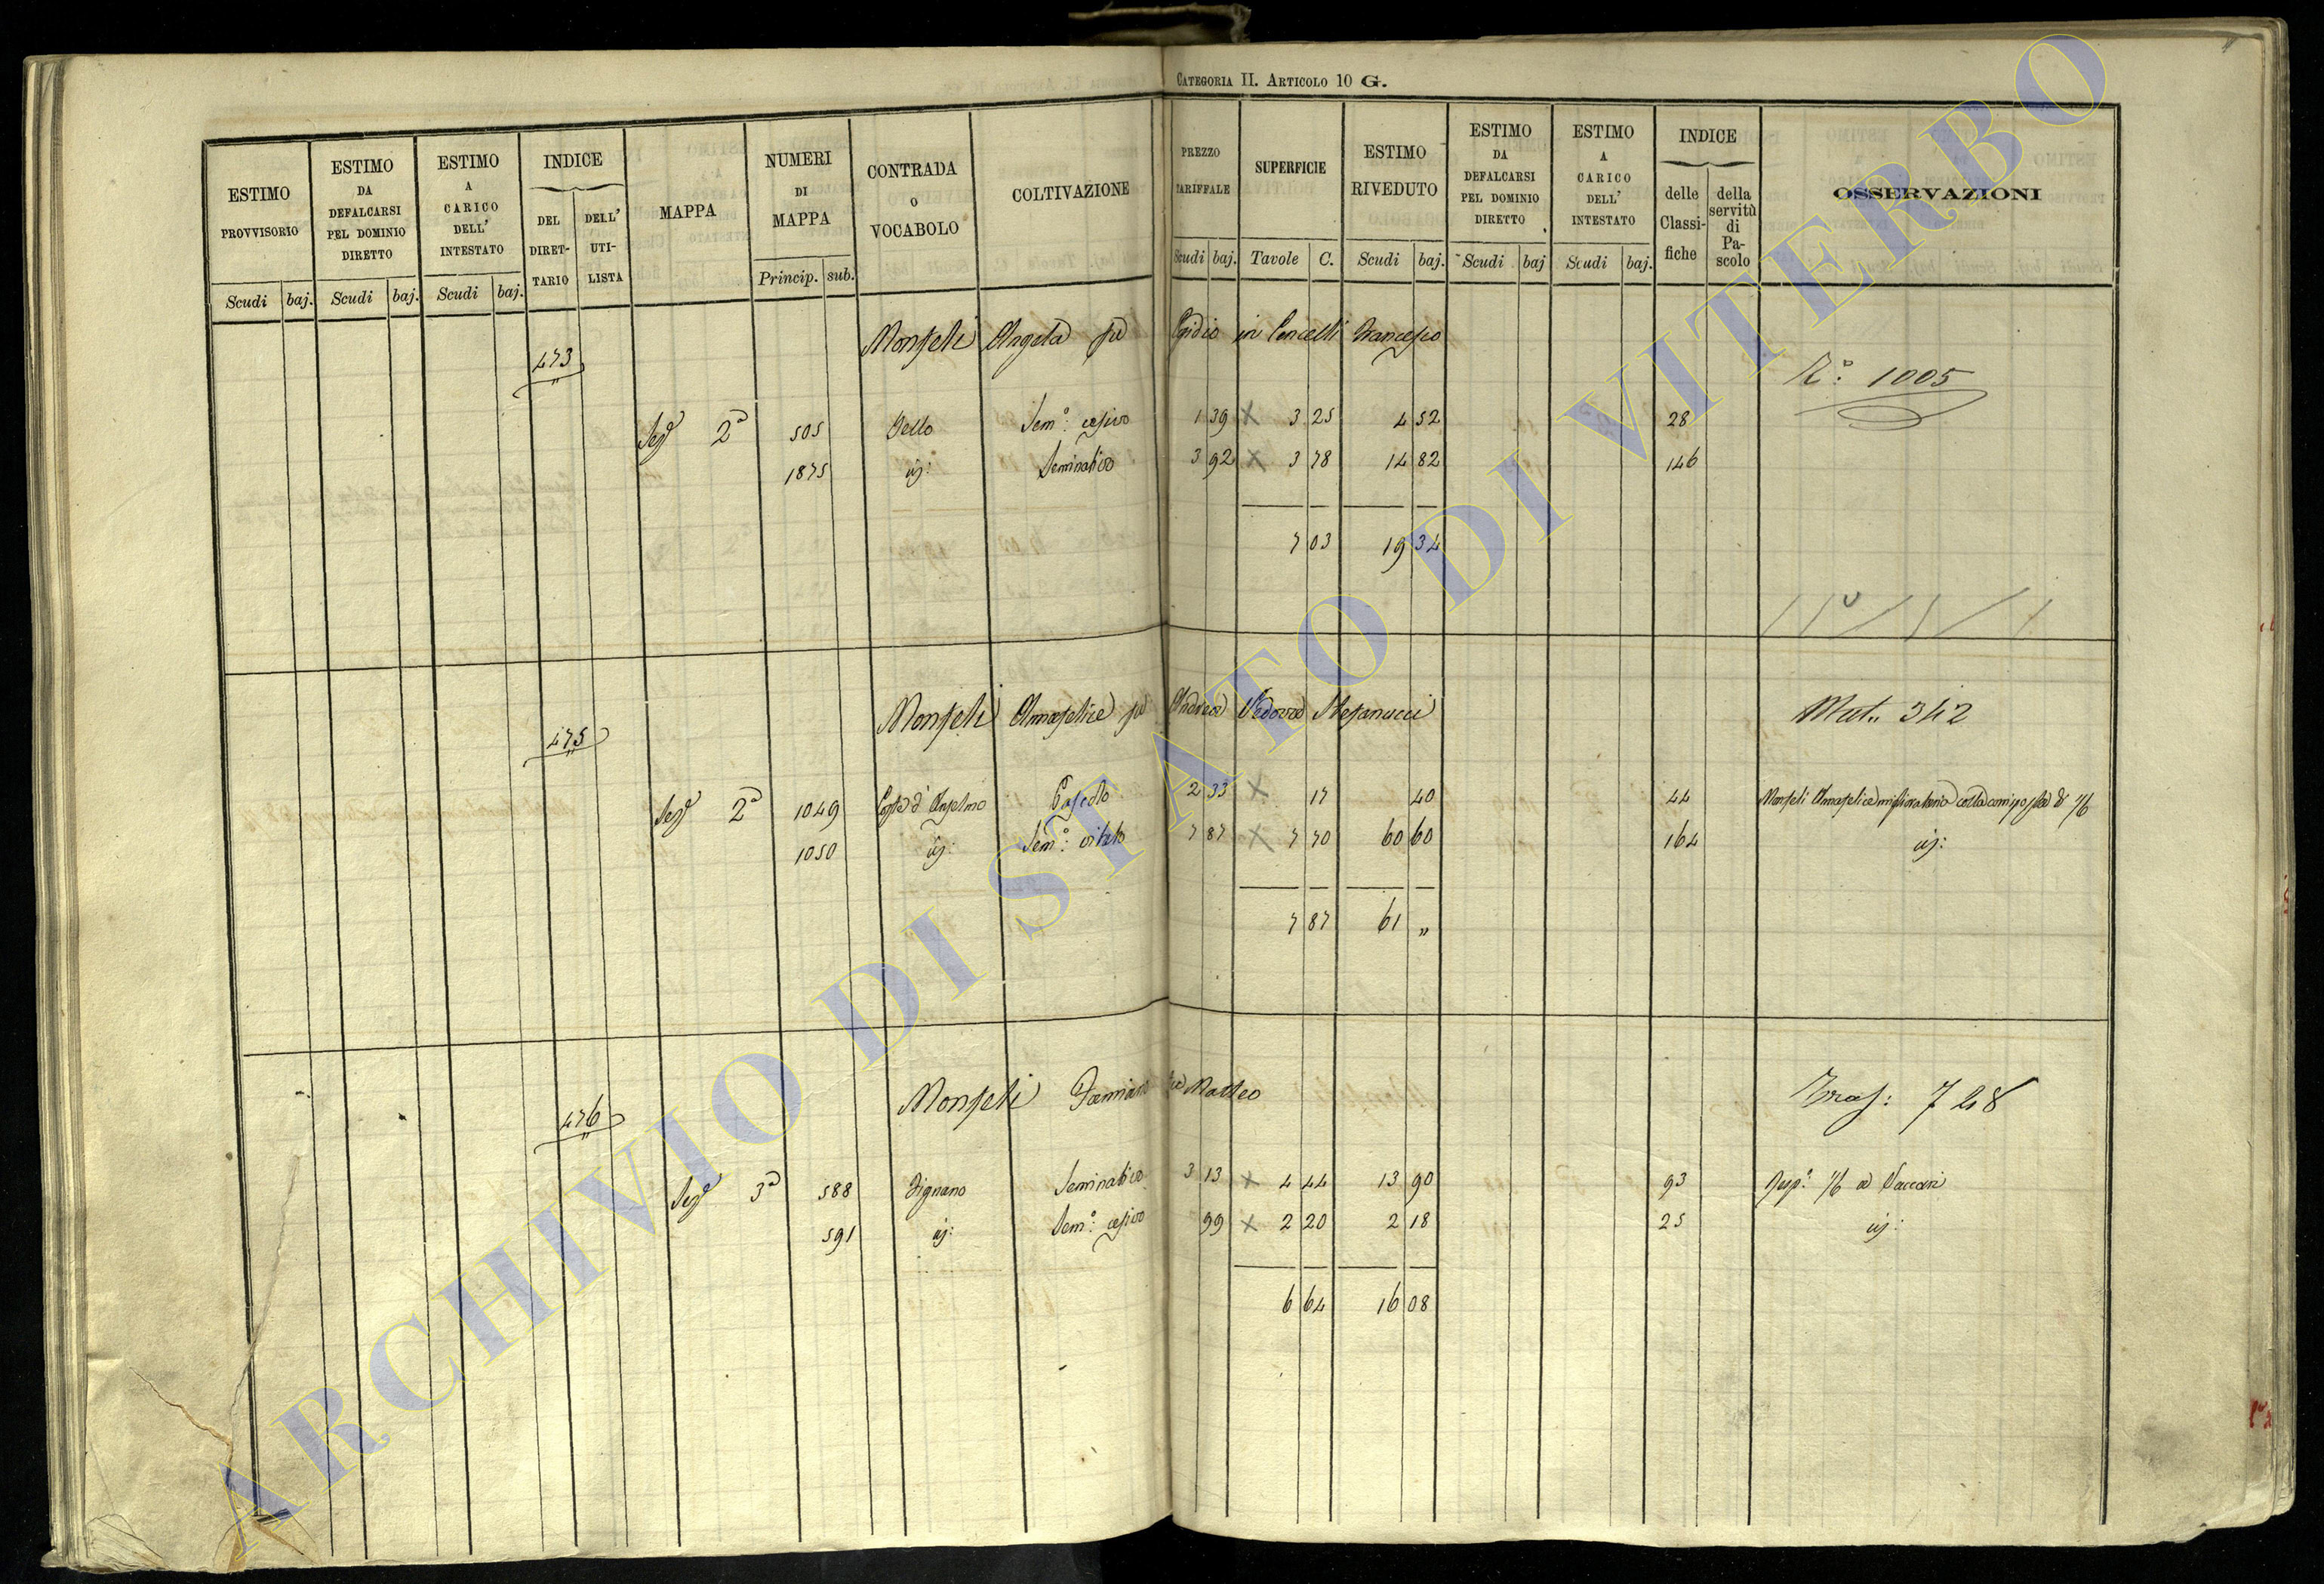 CATEGORIA II. ARTICOLO 10 G.
ESTIMO PROVVISORIO
ESTIMO DA DEFALCARSI PEL DOMINIO DIRETTO
ESTIMO A CARICO DELL' INTESTATO
INDICE
DEL DIRET-TARIO
DELL' UTI-LISTA
MAPPA
NUMERI DI MAPPA
CONTRADA O VOCABOLO
COLTIVAZIONE
PREZZO TARIFFALE
SUPERFICIE
ESTIMO RIVEDUTO
ESTIMO DA DEFALCARSI PEL DOMINIO DIRETTO
ESTIMO A CARICO DELL' INTESTATO
INDICE
delle Classi-fiche
della servitù di Pa-scolo
OSSERVAZIONI
Scudi baj. Scudi baj. Scudi baj. Princip. sub. Scudi baj. Tavole C. Scudi baj. Scudi baj Scudi baj.
473 Monfeli Angela fu Egidio in Francesco
N.° 1005
2ª 505 Sem.°: 1 39 3 25 4 52 28
1875 Seminativo 3 92 3 78 14 82 146
7 03 19 34
475 Monfeli Amafelice fu Andrea Vedova Stefanucci Mat. 342
2ª 1049 d'Anselmo 2 33 17 40 44 Monfeli Amafelice migliorataria colla composta di 1/6
1050 Sem.°: vitato 7 87 7 70 60 60 164
7 87 61 "
476 Monfeli Damiano fu Matteo Tras: 728
3ª 588 Dignano Seminativo 3 13 4 44 13 90 93 Risp.ª 1/6 a Vaccari
591 Sem.°: 99 2 20 2 18 25
6 64 16 08
ARCHIVIO DI STATO DI VITERBO